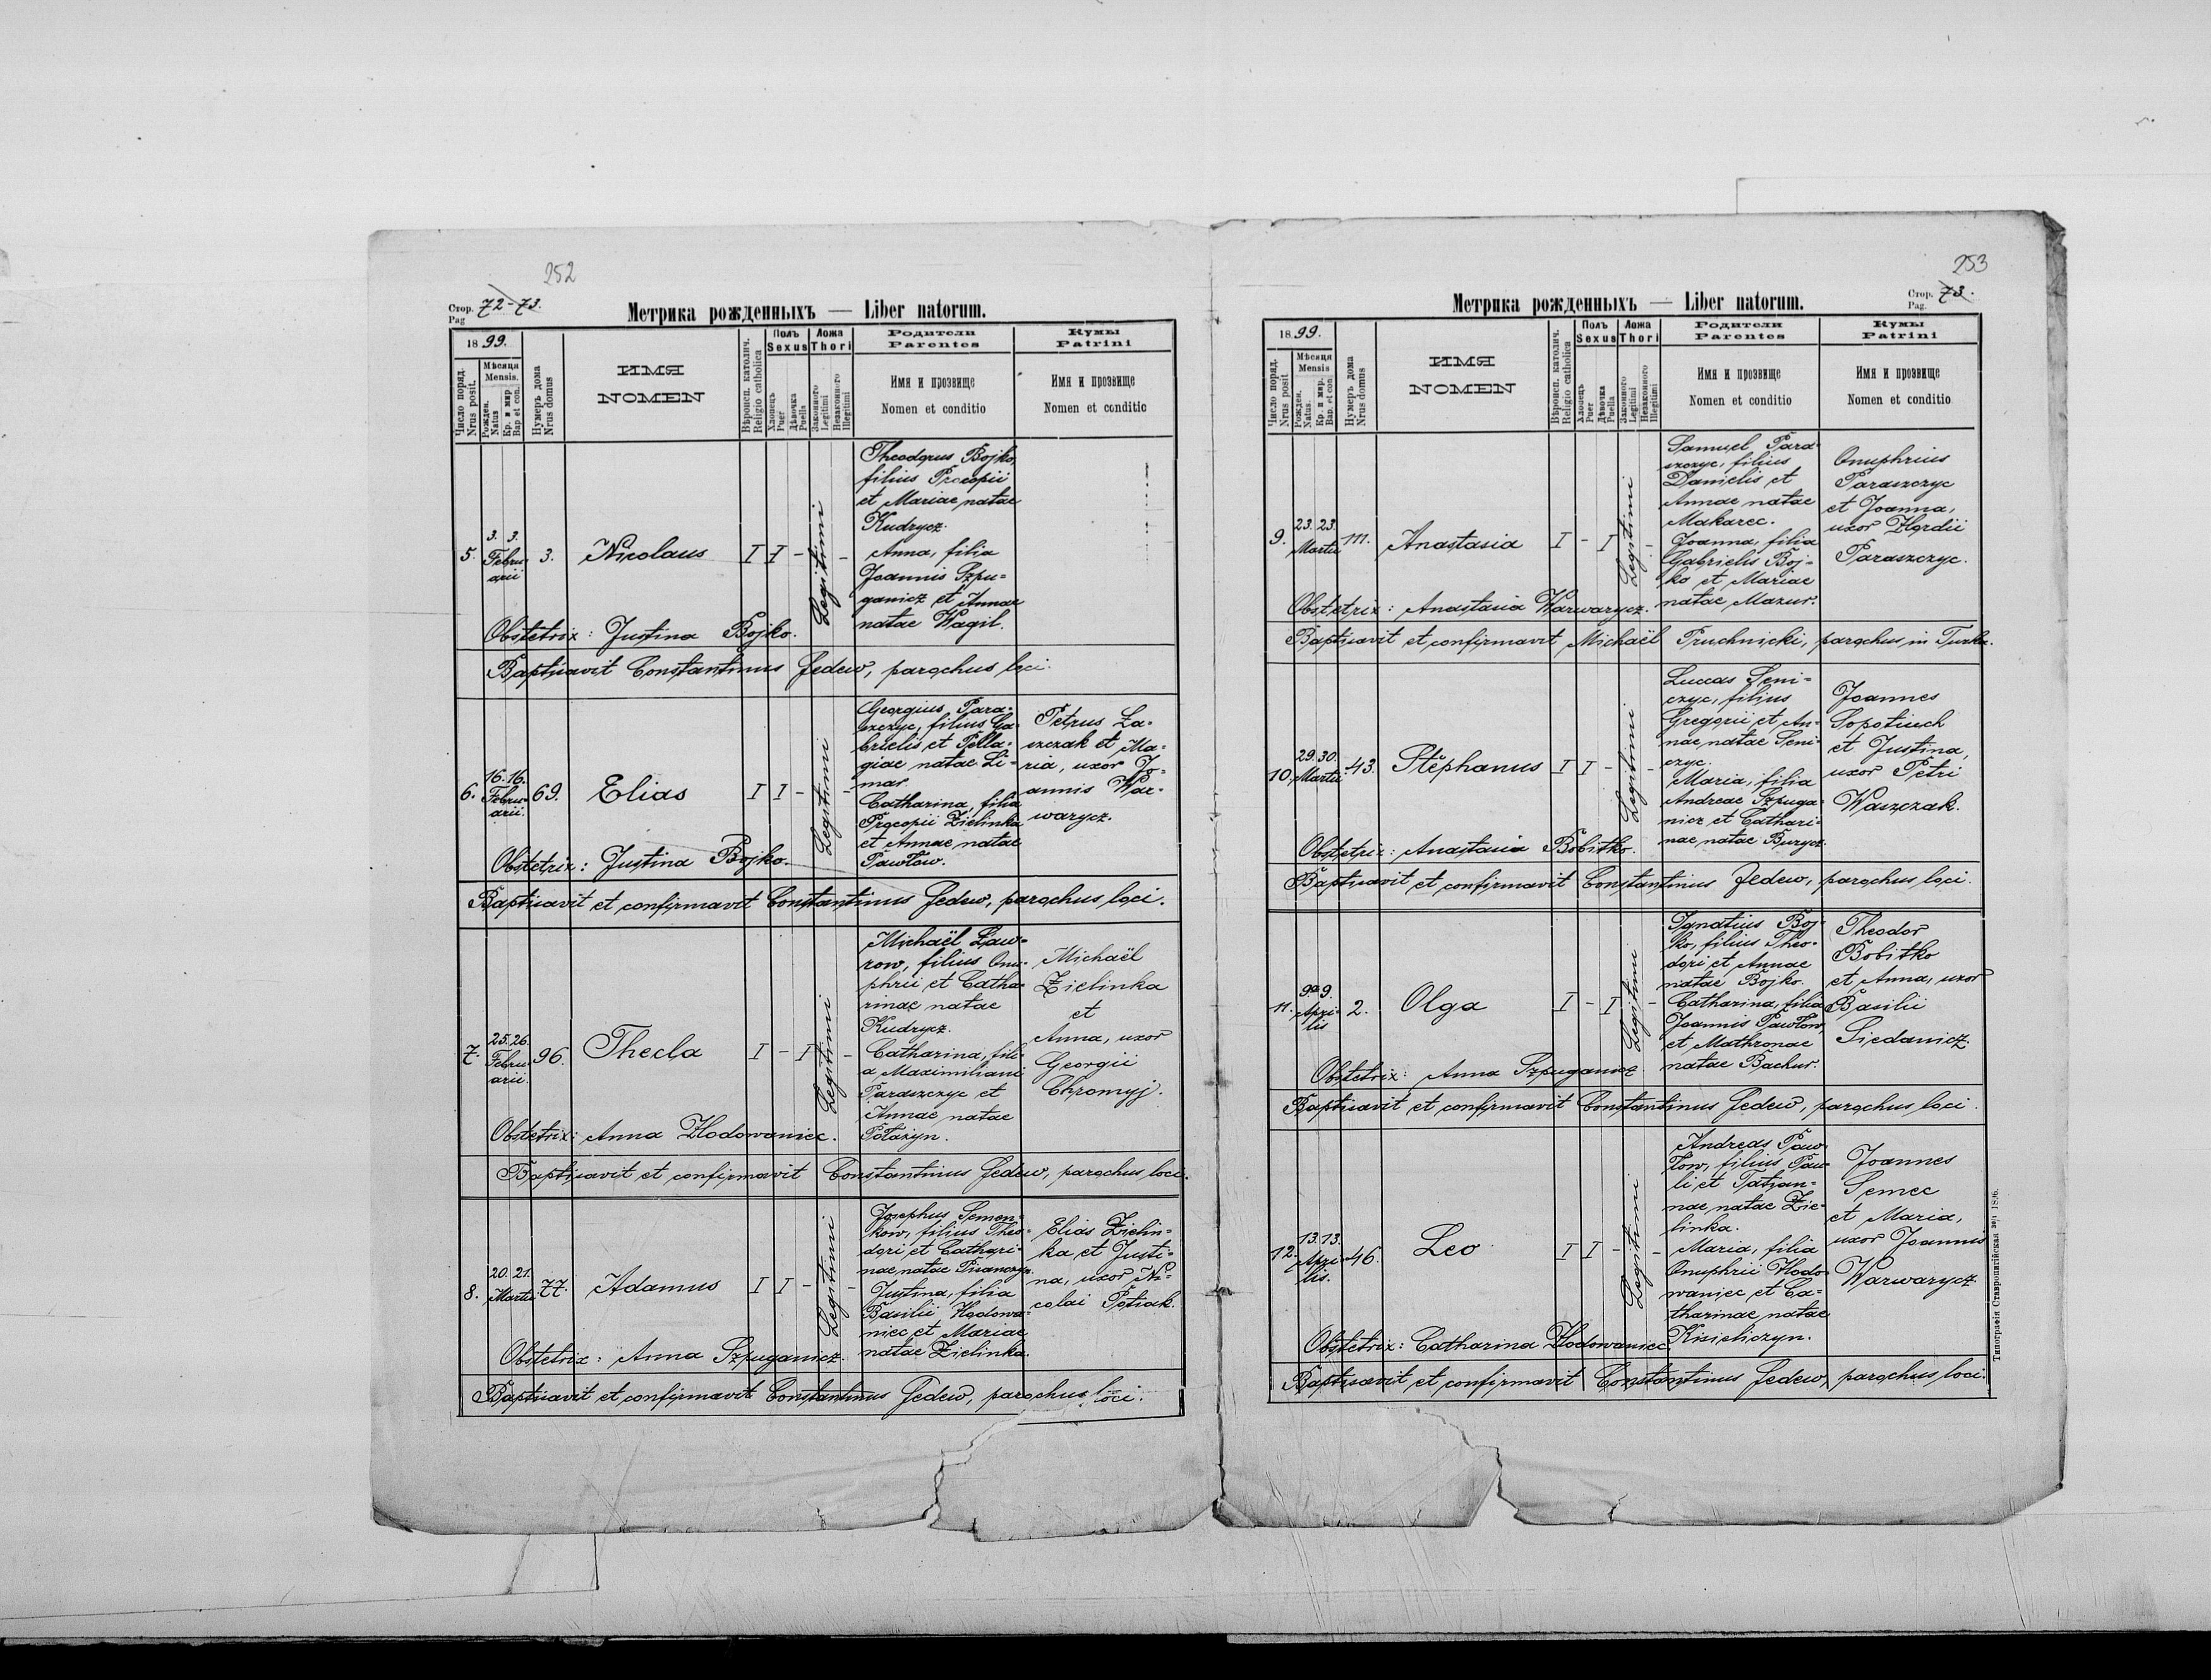 252
Стор. 72-73.
Pag
Метрика рожденныхъ — Liber natorum.
1899.
Число поряд.
Nrus posit.
Мѣсяця
Mensis.
Рожден.
Natus
Кр. и мир.
Bap et con.
Нумеръ дома
Nrus domus
ИМЯ
NOMEN
Вѣроисп. католич.
Religio catholica
Полъ
Sexus
Хлопецъ
Puer
Дѣвочка
Puella
Ложа
Thori
Законного
Legitimi
Незаконного
Illegitimi
Родители
Parentes
Имя и прозвище
Nomen et conditio
Кумы
Patrini
Имя и прозвище
Nomen et conditio
5.
3. 3.
Febru-
arii
3.
Nicolaus
I I -
Legitimi
-
Theodorus Bojko,
filius Procopii
et Mariae natae
Kudrycz.
Anna, filia
Joannis Szpu-
ganicz et Annae
natae Wagil.
Obstetrix: Justina Bojko.
Baptisavit Constantinus Fedew, parochus loci.
6.
16. 16.
Febru-
arii.
69.
Elias
I I -
Legitimi
-
Georgius Para-
szczyc, filius Ga-
brielis et Pella-
giae natae Li-
mar.
Catharina, filia
Procopii Zielinka
et Annae natae
Pawłow.
Petrus Ła-
szczak et Ma-
ria, uxor Jo-
annis War-
warycz.
Obstetrix: Justina Bojko.
Baptisavit et confirmavit Constantinus Fedew, parochus loci.
7.
25. 26.
Febru-
arii.
96.
Thecla
I - I
Legitimi
-
Michaël Ław-
row, filius Onu-
phrii et Catha-
rinae natae
Kudrycz.
Catharina, fili-
a Maximiliani
Paraszczyc et
Annae natae
Potażyn.
Michaël
Zielinka
et
Anna, uxor
Georgii
Chromyj.
Obstetrix: Anna Hodowaniec.
Baptisavit et confirmavit Constantinus Fedew, parochus loci.
8.
20. 21.
Martii
77.
Adamus
I I -
Legitimi
-
Josephus Semen-
kow, filius Theo-
dori et Cathari-
nae natae Pisanczyn.
Justina, filia
Basilii Hodowa-
niec et Mariae
natae Zielinka.
Elias Zielin-
ka et Justi-
na, uxor Ni-
colai Potiak.
Obstetrix: Anna Szpuganicz.
Baptisavit et confirmavit Constantinus Fedew, parochus loci.
253
Стор. 73.
Pag.
Метрика рожденныхъ — Liber natorum.
1899.
Число поряд.
Nrus posit
Мѣсяця
Mensis
Рожден.
Natus.
Кр. и мир.
Bap. et con
Нумеръ дома
Nrus domus
ИМЯ
NOMEN
Вѣроисп. католич.
Religio catholica
Полъ
Sexus
Хлопецъ
Puer
Дѣвочка
Puella
Ложа
Thori
Законного
Legitimi
Незаконного
Illegitimi
Родители
Parentes
Имя и прозвище
Nomen et conditio
Кумы
Patrini
Имя и прозвище
Nomen et conditio
9.
23. 23.
Martii
111.
Anastasia
I - I
Legitimi
-
Samuel Para-
szczyc, filius
Danielis et
Annae natae
Makarec.
Joanna, filia
Gabrielis Boj-
ko et Mariae
natae Mazur.
Onuphrius
Paraszczyc
et Joanna,
uxor
Paraszczyc.
Obstetrix: Anastasia Warwarycz.
Baptisavit et confirmavit Michaël Pruchnicki, parochus in Turka.
10.
29. 30.
Martii
43.
Stephanus
I I -
Legitimi
-
Luccas Seni-
czyc, filius
Gregorii et An-
nae natae Seni-
czyc.
Maria, filia
Andreae Szpuga-
nicz et Cathari-
nae natae Burycz.
Joannes
Sopotiuch
et Justina,
uxor Petri
Waszczak.
Obstetrix: Anastasia Bobitko.
Baptisavit et confirmavit Constantinus Fedew, parochus loci.
11.
9. 9.
Apri-
lis
2.
Olga
I - I
Legitimi
-
Ignatius Boj-
ko, filius Theo-
dori et Annae
natae Bojko.
Catharina, filia
Joannis Pawłow
et Mathronae
natae Bachur.
Theodor
Bobitko
et Anna, uxor
Basilii
Siedanicz.
Obstetrix: Anna Szpuganicz.
Baptisavit et confirmavit Constantinus Fedew, parochus loci.
12.
13. 13.
Apri-
lis.
46.
Leo
I I -
Legitimi
-
Andreas Paw-
łow, filius Paw-
li et Tatian-
nae, natae Zie-
linka.
Maria, filia
Onuphrii Hodo-
waniec et Ca-
tharinae natae
Kisieliczyn.
Joannes
Semec
et Maria,
uxor Joannis
Warwarycz.
Obstetrix: Catharina Hodowaniec.
Baptisavit et confirmavit Constantinus Fedew, parochus loci.
Типографія Ставропигійская 1896.